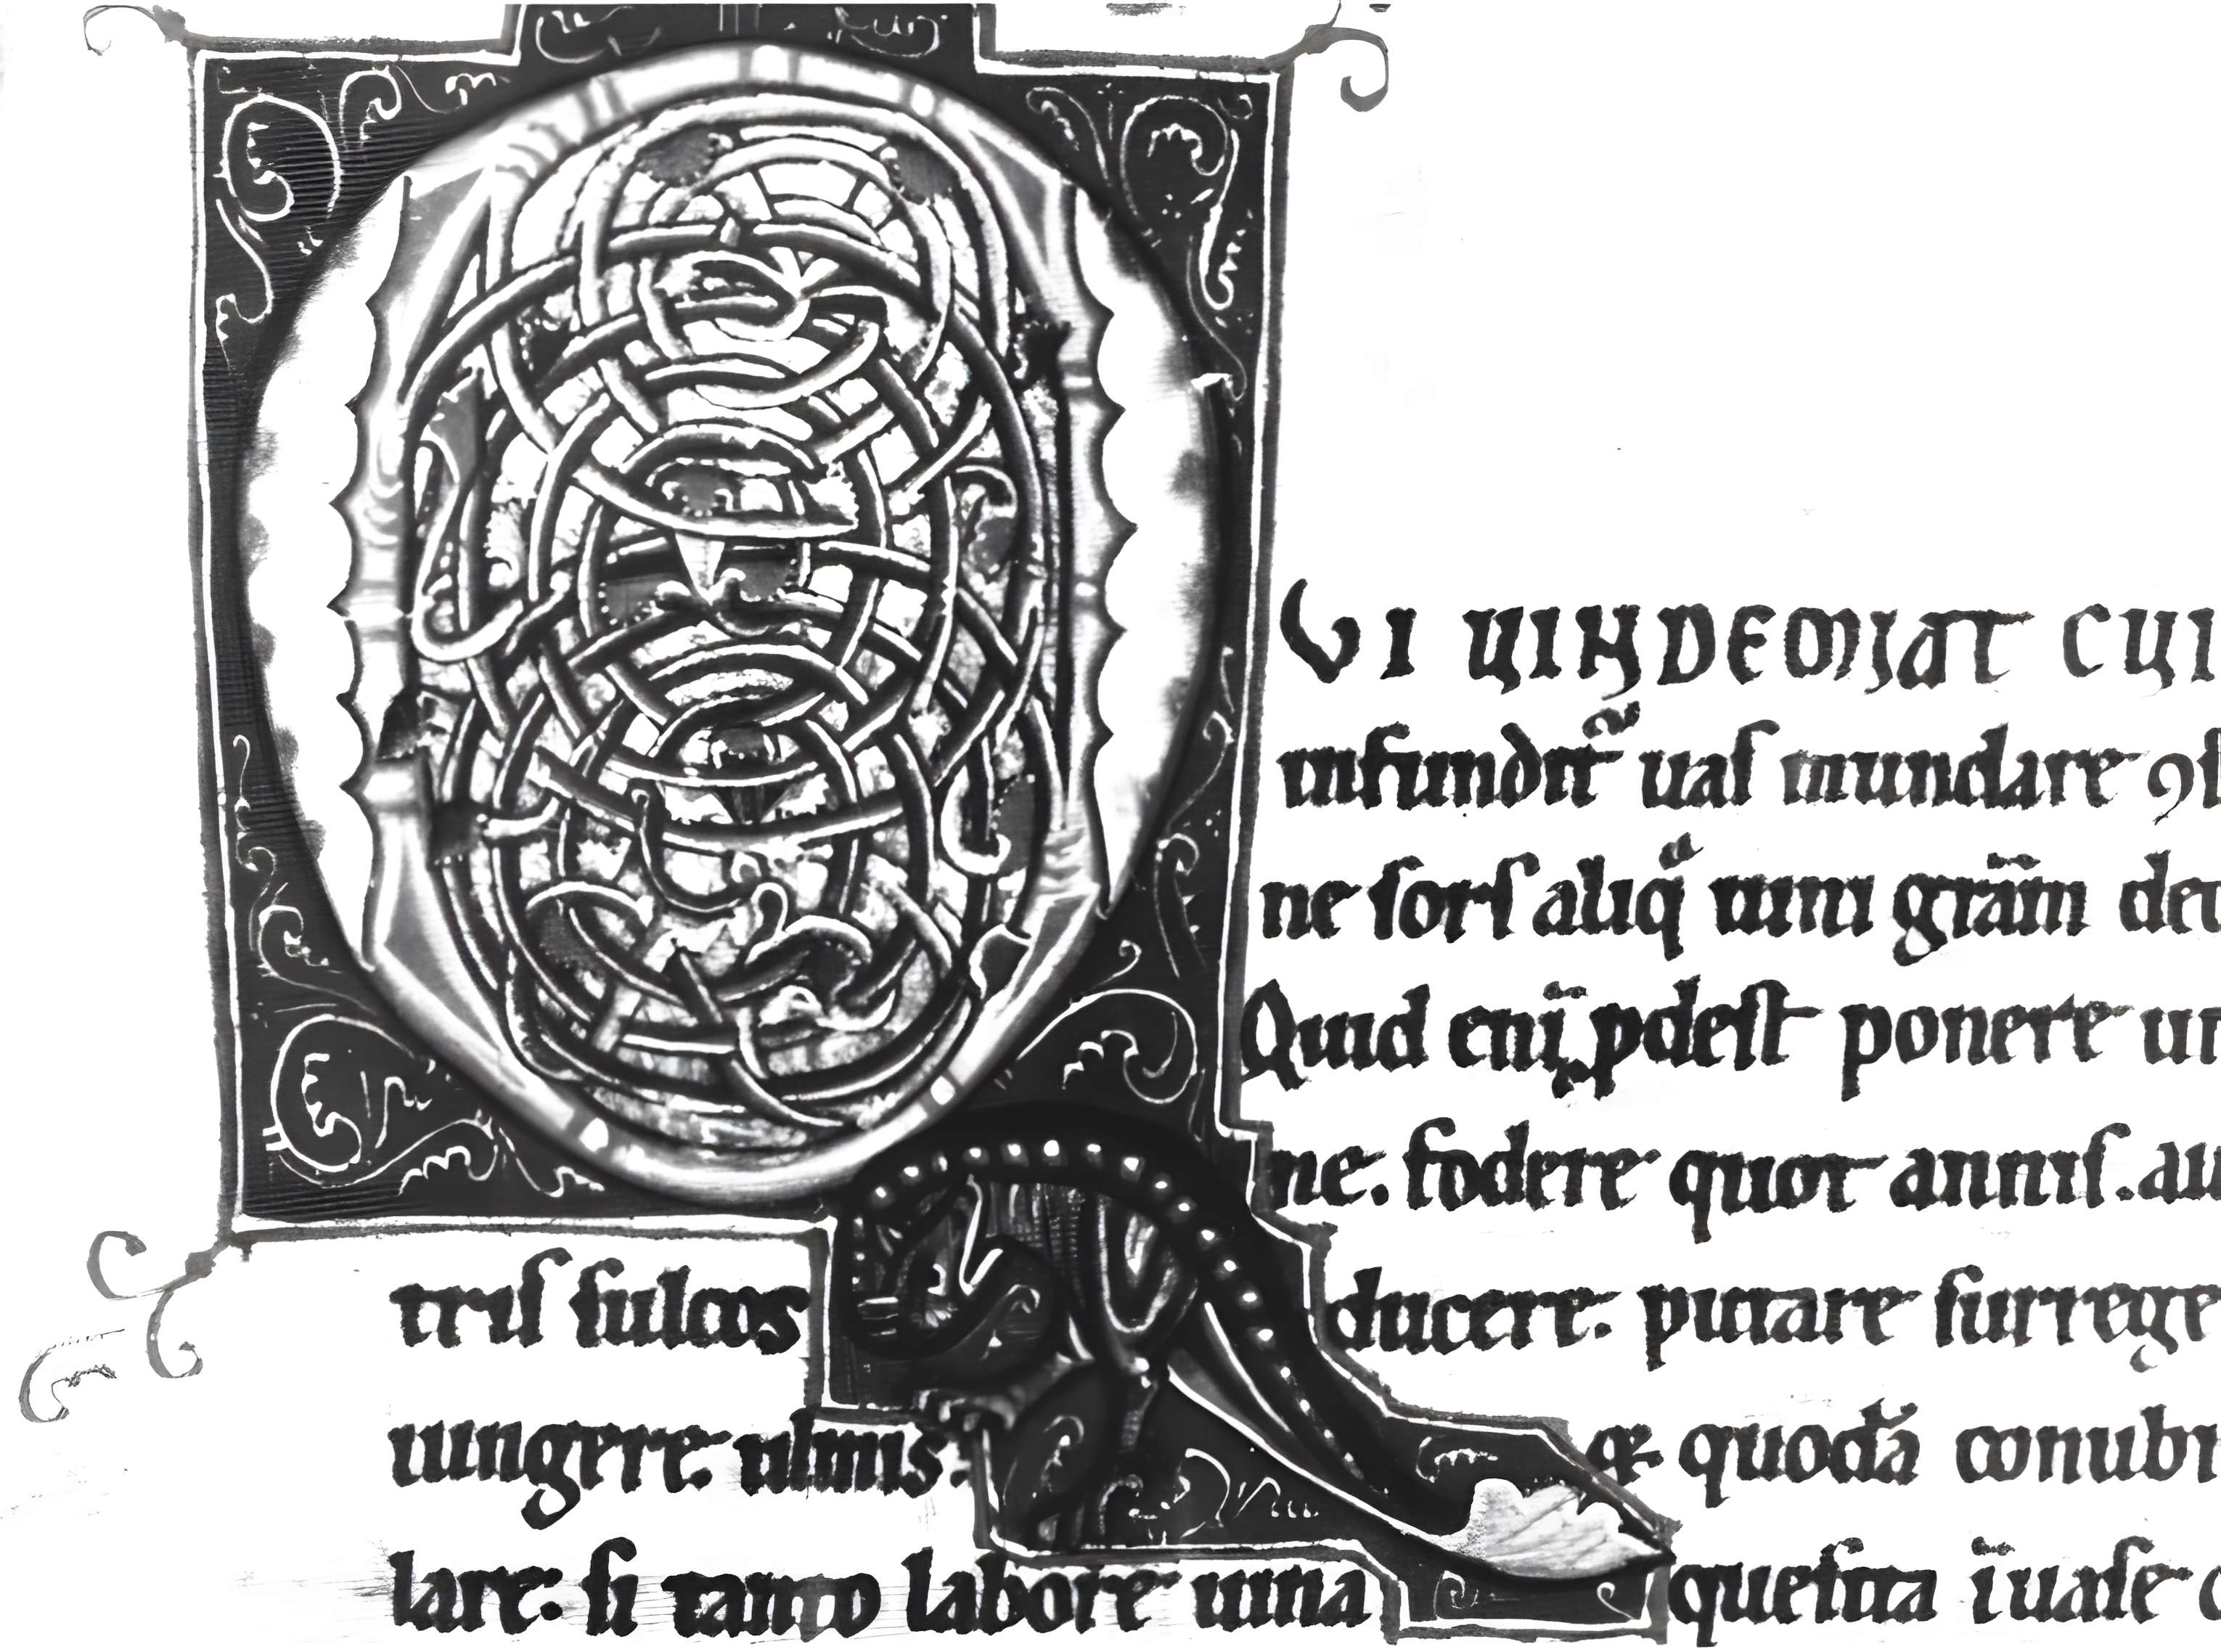 QVI UINDEMIAT CUI
infundit᷑ uaſ mundare ꝯſ
ne ſorſ aliqᵃ uini grãm dec
Quid eni ꝓdeſt ponere ui
ne. fodere quot anniſ. au
triſ ſulcos ducere. putare ſurrege
iungere. ulmis. & quodã conubi
lare: ſi tanto labore uina queſita ĩuaſe c